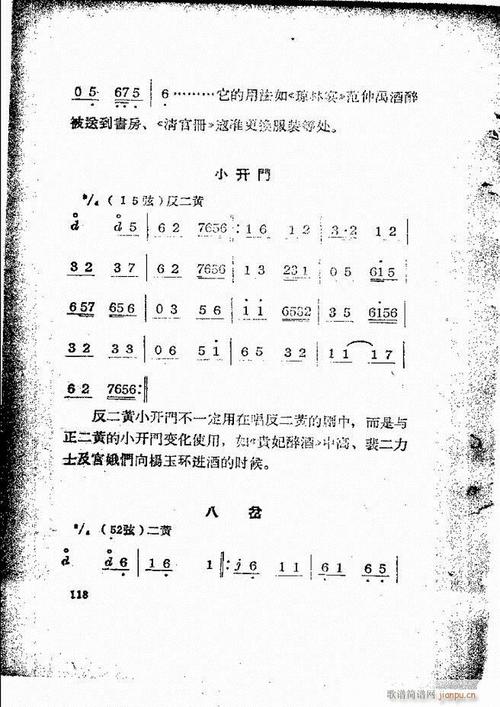 0 5 675 | 6 ………它的用法如《琼林宴》范仲禹酒醉
被送到書房、《清官冊》寇准更换服装等处。
小开門
2/4 (15弦)反二黄
d d 5 | 6 2 7656 :| 1 6 1 2 | 3·2 1 2 |
3 2 3 7 | 6 2 7656 | 1 3 231 | 0 5 615 |
657 656 | 0 3 5 6 | 1 1 6532 | 3 5 6156 |
3 2 3 5 | 0 6 5 1 | 6 5 3 2 | 1 1 1 7 |
6 2 7656 :||
反二黄小开門不一定用在唱反二黄的剧中，而是与
正二黄的小开門变化使用，如《貴妃醉酒》中高、裴二力
士及宫娥們向楊玉环进酒的时候。
八岔
2/4 (52弦)二黄
d d 6 | 1 6 1 |: j 6 1 1 | 6 1 6 5 |
118
歌谱简谱网
jianpu.cn